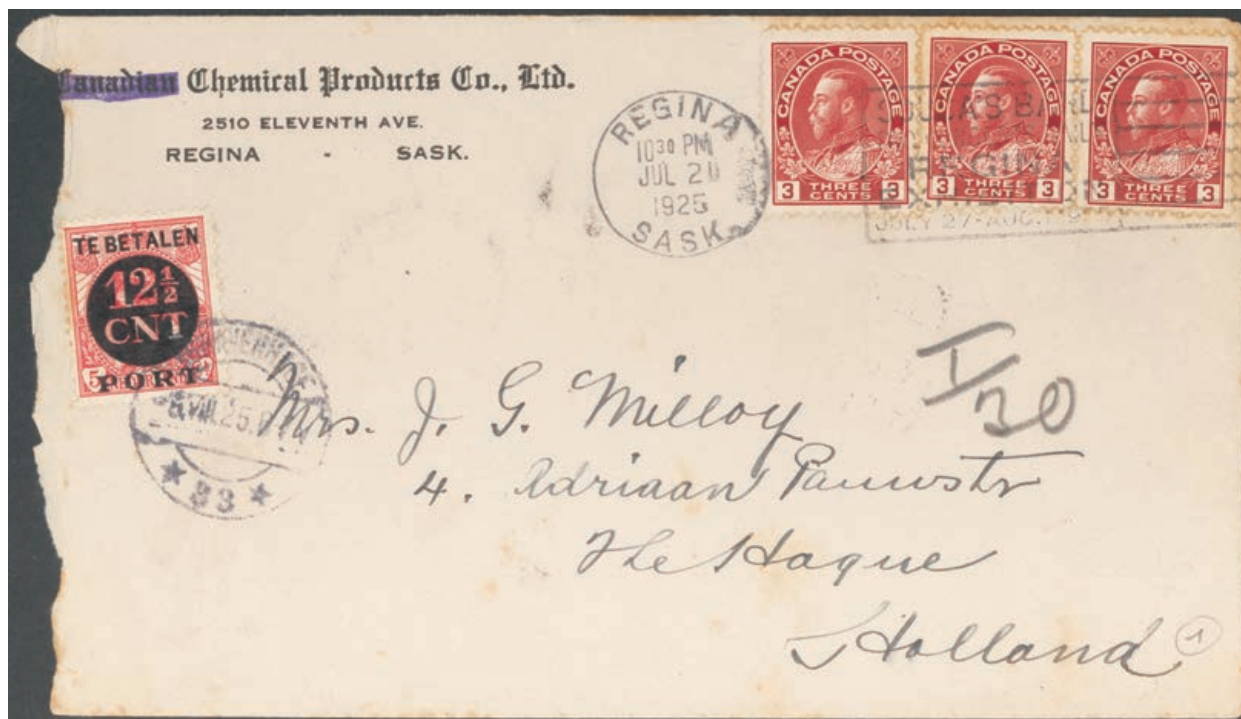 Canadian Chemical Products Co., Ltd.
2510 ELEVENTH AVE.
REGINA - SASK.
REGINA
10 30 PM
JUL 20
1925
SASK.
CANADA POSTAGE
3 THREE CENTS 3
CANADA POSTAGE
3 THREE CENTS 3
CANADA POSTAGE
3 THREE CENTS 3
REGINA
JULY 27-AUG.
TE BETALEN
12½
CNT
PORT
5
VIII.25
★ 33 ★
T/30
Mrs. J. G. Milloy
4. Adriaan Pauwstr
The Hague
Holland
1